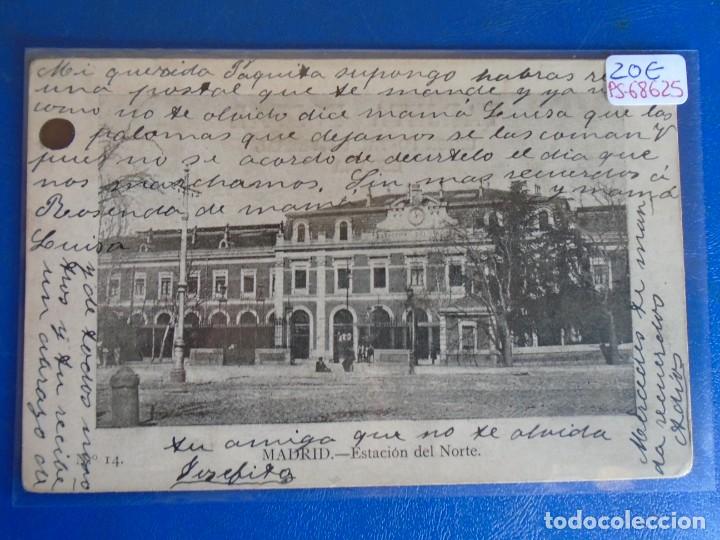 Mi querida Paquita supongo habras re
una postal que te mande y ya
como no te olvido dice mamá Luisa que las
palomas que dejamos se las coman V
pues no se acordo de decirtelo el dia que
nos marchamos. Sin mas recuerdos á
Rosenda de mamá y mamá
Luisa
y de todos
tios y tu recibe
un abrazo de
tu amiga que no te olvida
Josefita
Mercedes te man
da recuerdos
Adios
Nº 14.
MADRID.—Estación del Norte.
20€
PS-68625
todocoleccion.net